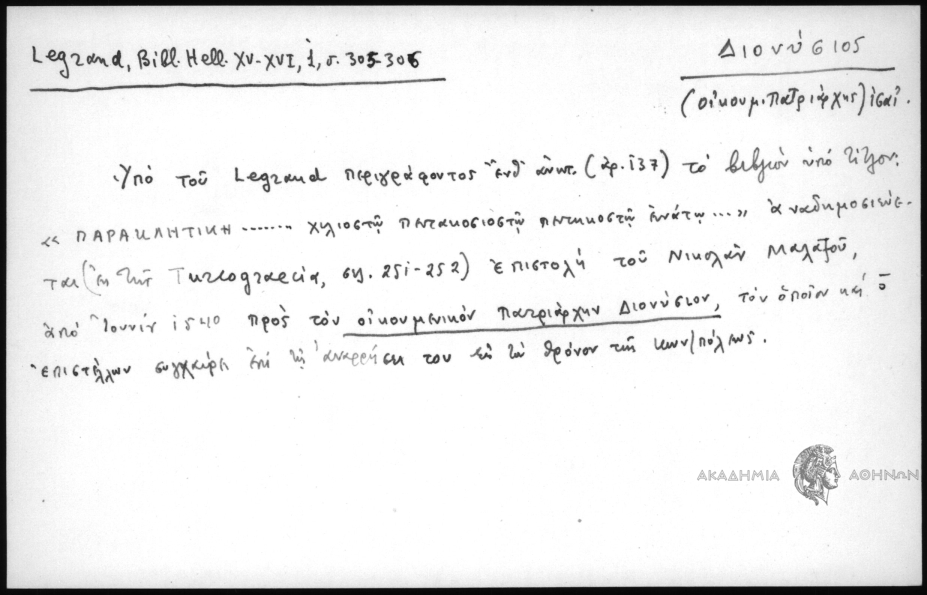 Legrand, Bibl. Hell. XV-XVI, 1, σ. 305-306
Διονύσιος
(οἰκουμ. Πατριάρχης) ιςαί.
Ὑπὸ τοῦ Legrand περιγράφοντος ἔνθ' ἀνωτ. (ἀρ. 137) τὸ βιβλίον ὑπὸ τίτλον:
«ΠΑΡΑΚΛΗΤΙΚΗ ....... χιλιοστῷ πεντακοσιοστῷ πεντηκοστῷ ἐννάτῳ...» ἀναδημοσιεύε-
ται (ἐκ τῆς Turcograecia, σελ. 251-252) ἐπιστολὴ τοῦ Νικολάου Μαλαξοῦ,
ἀπὸ Ἰουνίου 1540 πρὸς τὸν οἰκουμενικόν πατριάρχην Διονύσιον, τὸν ὁποῖον καὶ ὁ
ἐπιστέλλων συγχαίρει ἐπὶ τῇ ἀναρρήσει του εἰς τὸν θρόνον τῆς Κων/πόλεως.
ΑΚΑΔΗΜΙΑ ΑΘΗΝΩΝ